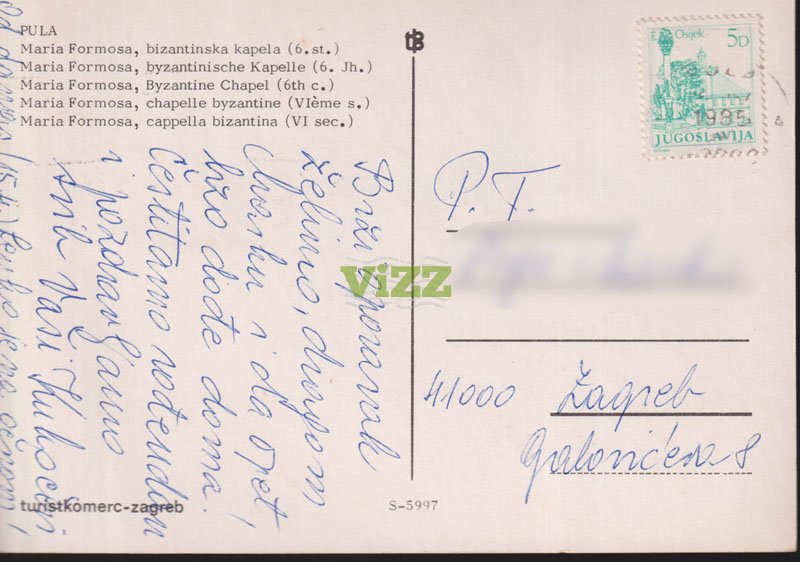 PULA
Maria Formosa, bizantinska kapela (6.st.)
Maria Formosa, byzantinische Kapelle (6. Jh.)
Maria Formosa, Byzantine Chapel (6th c.)
Maria Formosa, chapelle byzantine (VIème s.)
Maria Formosa, cappella bizantina (VI sec.)
Brzi oporavak
želimo, dragom
i da opet
brzo dođe doma.
Čestitamo rođendan
i pozdravljamo
Svih Vaši
Od danas (15.
ViZZ
turistkomerc-zagreb
S-5997
Osijek 5D
1985
JUGOSLAVIJA
P. T.
41000 Zagreb
Galovićeva 8